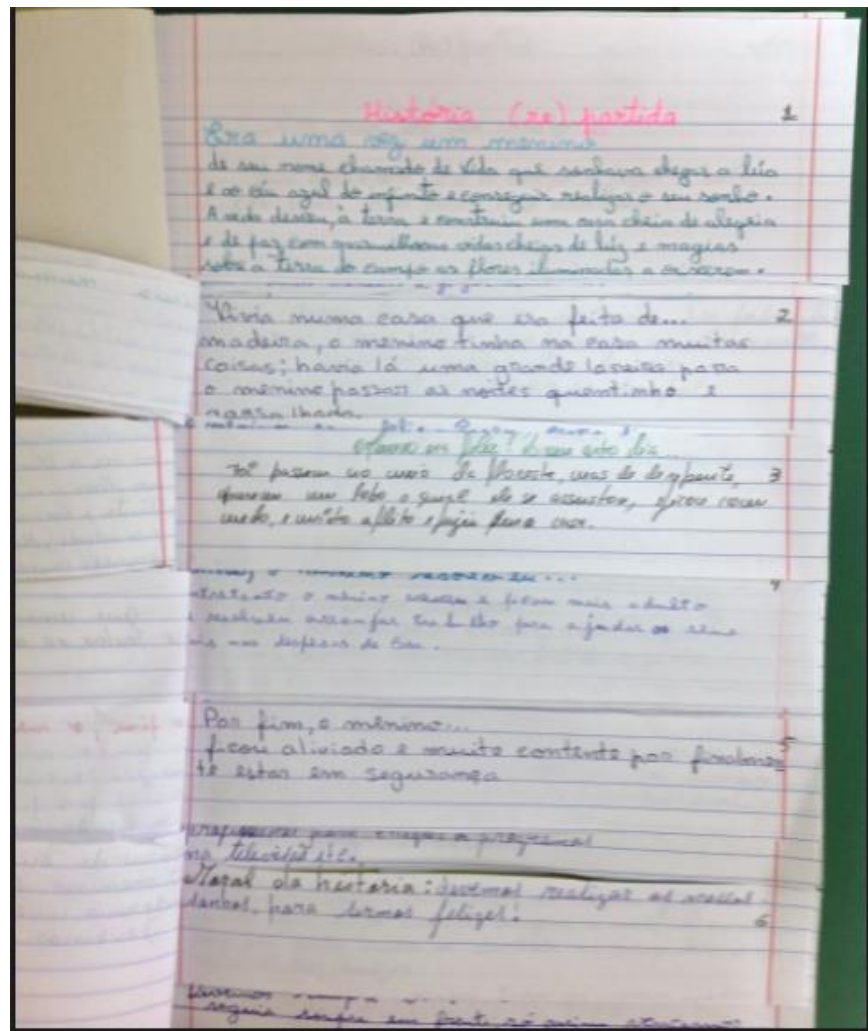 História (re) partida 1
Era uma vez um menino
de seu nome chamado de Vida que sonhava chegar a
e ao céu azul do infinito e conseguir realizar o seu sonho.
A vida desceu, à terra e construiu uma casa cheia de alegria
e de paz com maravilhosas vidas cheias de luz e magias
sobre a terra do campo as flores iluminadas a
Vivia numa casa que era feita de... 2
madeira, o menino tinha na casa muitas
coisas; havia lá uma grande lareira para
o menino passar as noites quentinho e
Foi passear no meio da floresta, mas de repente, 3
apareceu um lobo o qual ele se assustou, ficou com
medo, e muito aflito e fugiu para casa.
o menino 4
o menino cresceu e ficou mais adulto
e resolveu arranjar trabalho para ajudar os seus
pais nas despesas de casa.
Por fim, o menino...
ficou aliviado e muito contente por finalmen 5
te estar em segurança
para programas
na televisão etc.
Moral da história: devemos realizar os nossos
sonhos, para sermos felizes! 6
sempre em frente, só assim